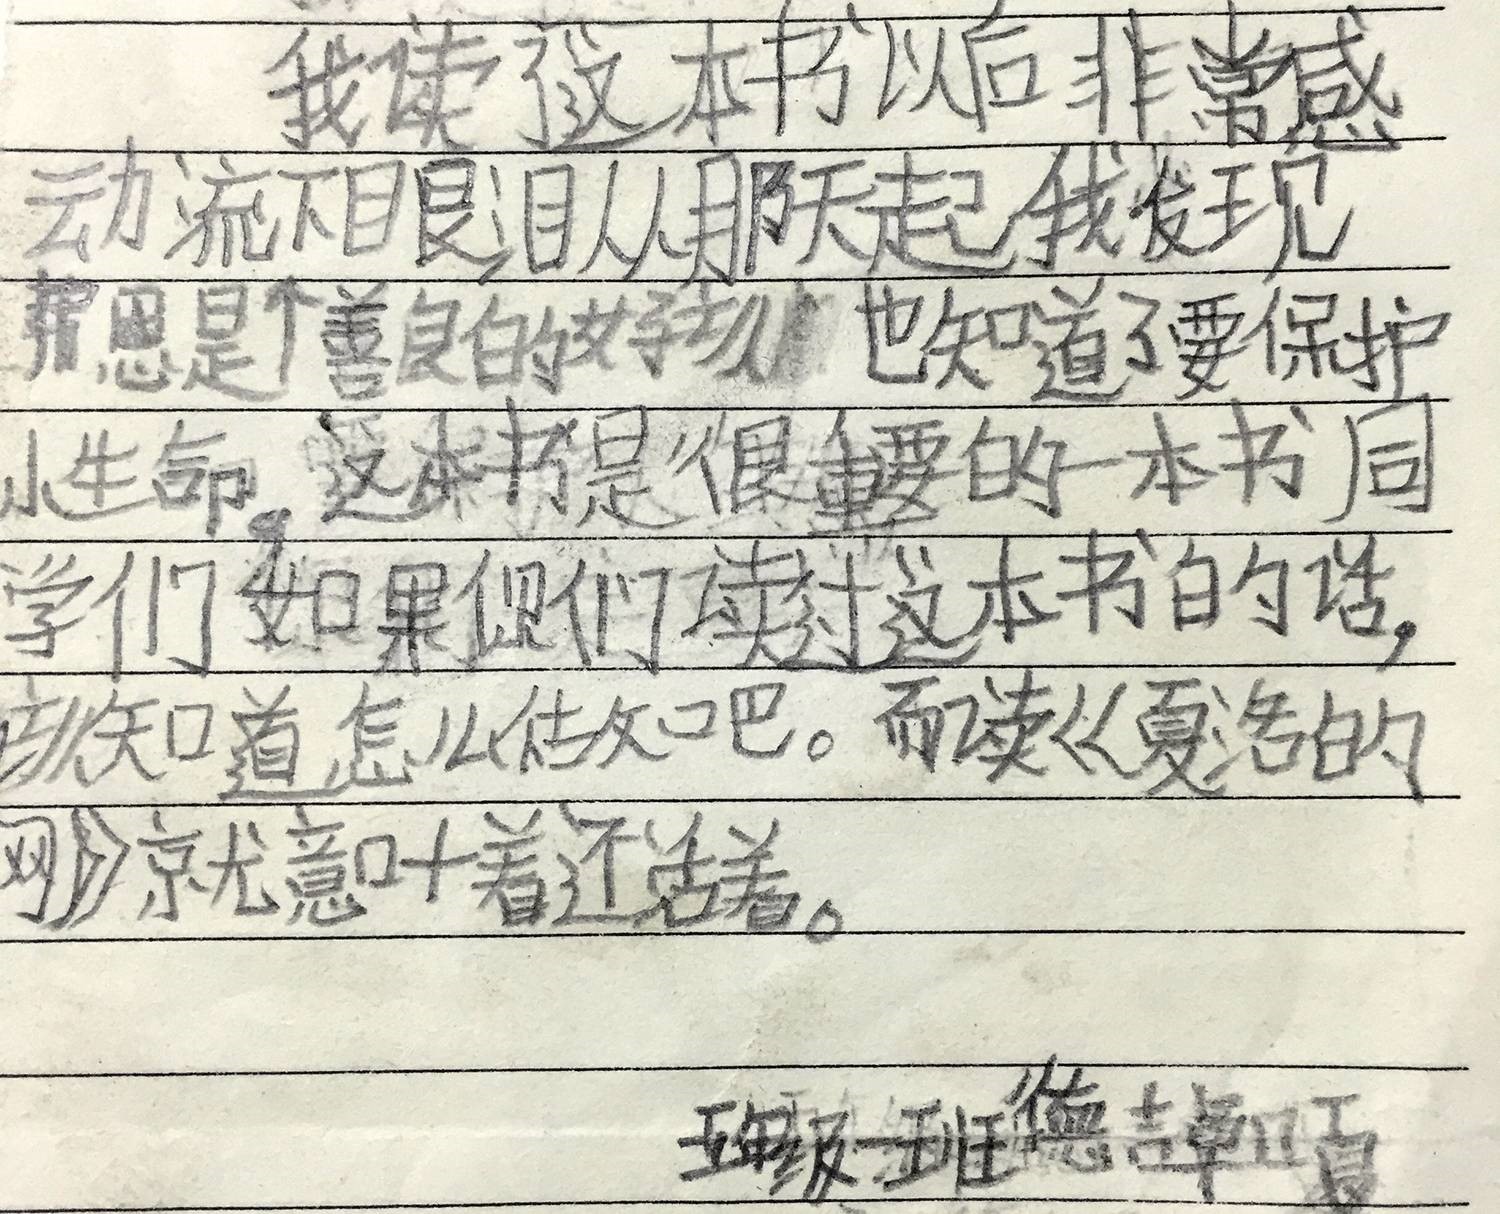 我读了这本书以后非常感
动流下眼泪从那天起我发现
蒋恩是个善良的女孩 也知道了要保护
小生命,这本书是很重要的一本书同
学们如果你们读过这本书的话,
该知道怎么做吧。而读《夏洛的
网》就意味着还活着。
班级一班德吉卓